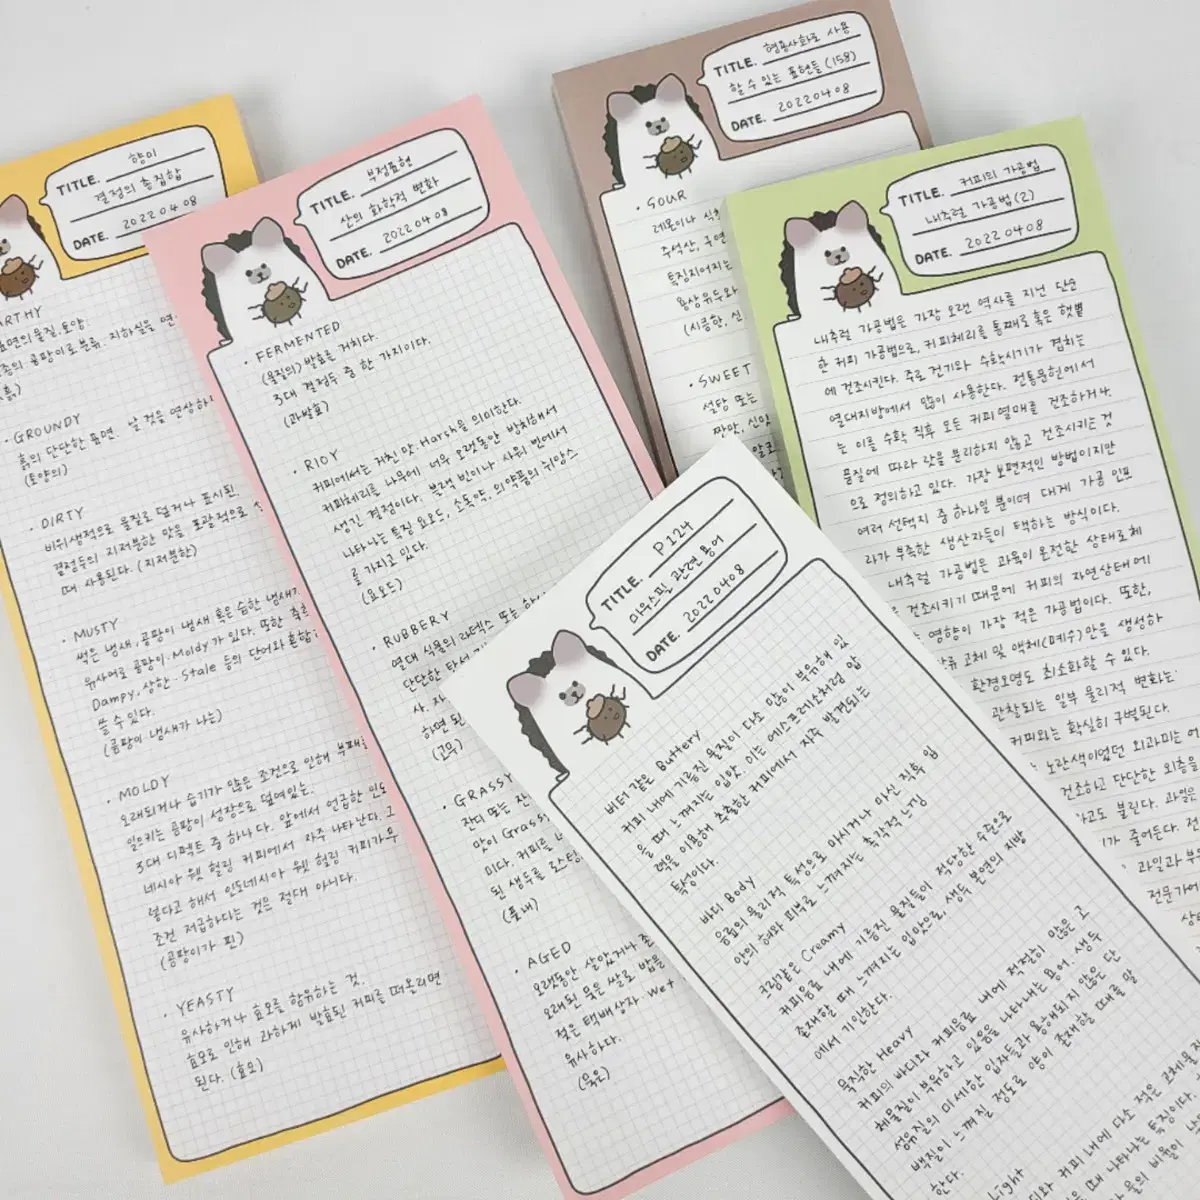 TITLE. 향미
결정의 총집합
DATE. 20220408
ARTHY
표면의 물질. 토양.
종의 곰팡이로 분류. 지하실을 연
흙)
· GROUNDY
흙의 단단한 표면. 날 것을 연상하
(토양의)
· DIRTY
비위생적으로 물질로 덮거나 표시된.
결점두의 지저분한 맛을 포괄적으로
때 사용된다. (지저분한)
· MUSTY
썩은 냄새, 곰팡이 냄새 혹은 습한 냄새
유사어로 곰팡이. Moldy가 있다. 또한 축축
Dampy, 상한. Stale 등의 단어와 혼합
쓸 수 있다.
(곰팡이 냄새가 나는)
· MOLDY
오래되거나 습기가 많은 조건으로 인해 부패를
일으키는 곰팡이 성장으로 덮여있는.
3대 디펙트 중 하나다. 앞에서 언급한 인도
네시아 웻 헐링 커피에서 자주 나타난다. 그
렇다고 해서 인도네시아 웻 헐링 커피가 무
조건 저급하다는 것은 절대 아니다.
(곰팡이가 핀)
· YEASTY
유사하거나 효모를 함유하는 것.
효모로 인해 과하게 발효된 커피를 떠올리면
된다. (효모)
TITLE. 부정표현
산의 화학적 변화
DATE. 20220408
· FERMENTED
(물질의) 발효를 거치다.
3대 결점두 중 한 가지이다.
(과발효)
· RIOY
커피에서는 거친 맛. Harsh을 의미한다.
커피체리를 나무에 너무 오랫동안 방치해서
생긴 결점이다. 블랙 빈이나 사워 빈에서
나타나는 특징 요오드, 소독약, 의약품의 뉘앙스
를 가지고 있다.
(요오드)
· RUBBERY
열대 식물의 라텍스 또는 합
단단한 탄성
사. 자
하면 된
(고무)
· GRASSY
잔디 또는 잔
맛이 Grass
미다. 커피를
된 생두를 로스팅
(풀내)
· AGED
오랫동안 살았거나 존
오래된 묵은 쌀로. 밥을
젖은 택배상자. Wet
유사하다.
(묵은)
TITLE. 형용사화로 사용
할 수 있는 표현들 (158)
DATE. 20220408
· SOUR
레몬이나 식초
주석산, 구연
특징지어지는
용상유두와
(시큼한, 신
· SWEET
설탕 또는
짠맛, 신맛
알코
TITLE. 커피의 가공법
내추럴 가공법 (2)
DATE. 20220408
내추럴 가공법은 가장 오랜 역사를 지닌 단순
한 커피 가공법으로, 커피체리를 통째로 혹은 햇볕
에 건조시킨다. 주로 건기와 수확시기가 겹치는
열대지방에서 많이 사용한다. 전통문헌에서
는 이를 수확 직후 모든 커피 열매를 건조하거나.
품질에 따라 랏을 분리하지 않고 건조시키는 것
으로 정의하고 있다. 가장 보편적인 방법이지만
여러 선택지 중 하나일 뿐이며 대게 가공 인프
라가 부족한 생산자들이 택하는 방식이다.
내추럴 가공법은 과육이 온전한 상태로 체
건조시키기 때문에 커피의 자연상태에
영향이 가장 적은 가공법이다. 또한,
류 고체 및 액체(폐수)만을 생성하
환경오염도 최소화할 수 있다.
관찰되는 일부 물리적 변화는
커피와는 확실히 구별된다.
노란색이었던 외과피는 어
건조하고 단단한 외층을
라고도 불린다. 과일은
가 줄어든다. 전
과일과 부유
전문가에
TITLE. P124
마우스필 관련 용어
DATE. 20220408
버터 같은 Buttery
커피 내에 기름진 물질이 다소 많이 부유해 있
을 때 느껴지는 입맛. 이는 에스프레소처럼 압
력을 이용해 추출한 커피에서 자주 발견되는
특성이다.
바디 Body
음료의 물리적 특성으로 마시거나 마신 직후 입
안의 혀와 피부로 느껴지는 촉각적 느낌
크림같은 Creamy
커피음료 내에 기름진 물질들이 적당한 수준으로
존재할 때 느껴지는 입맛으로, 생두 본연의 지방
에서 기인한다.
묵직한 Heavy
커피의 바디와 커피음료 내에 적절히 많은 고
체물질이 부유하고 있음을 나타내는 용어. 생두
섬유질의 미세한 입자들과 용해되지 않은 단
백질이 느껴질 정도로 양이 존재할 때를 말
한다.
ight
와 커피 내에 다소 적은 고체물질
때 나타나는 특징이다.
의 비율이